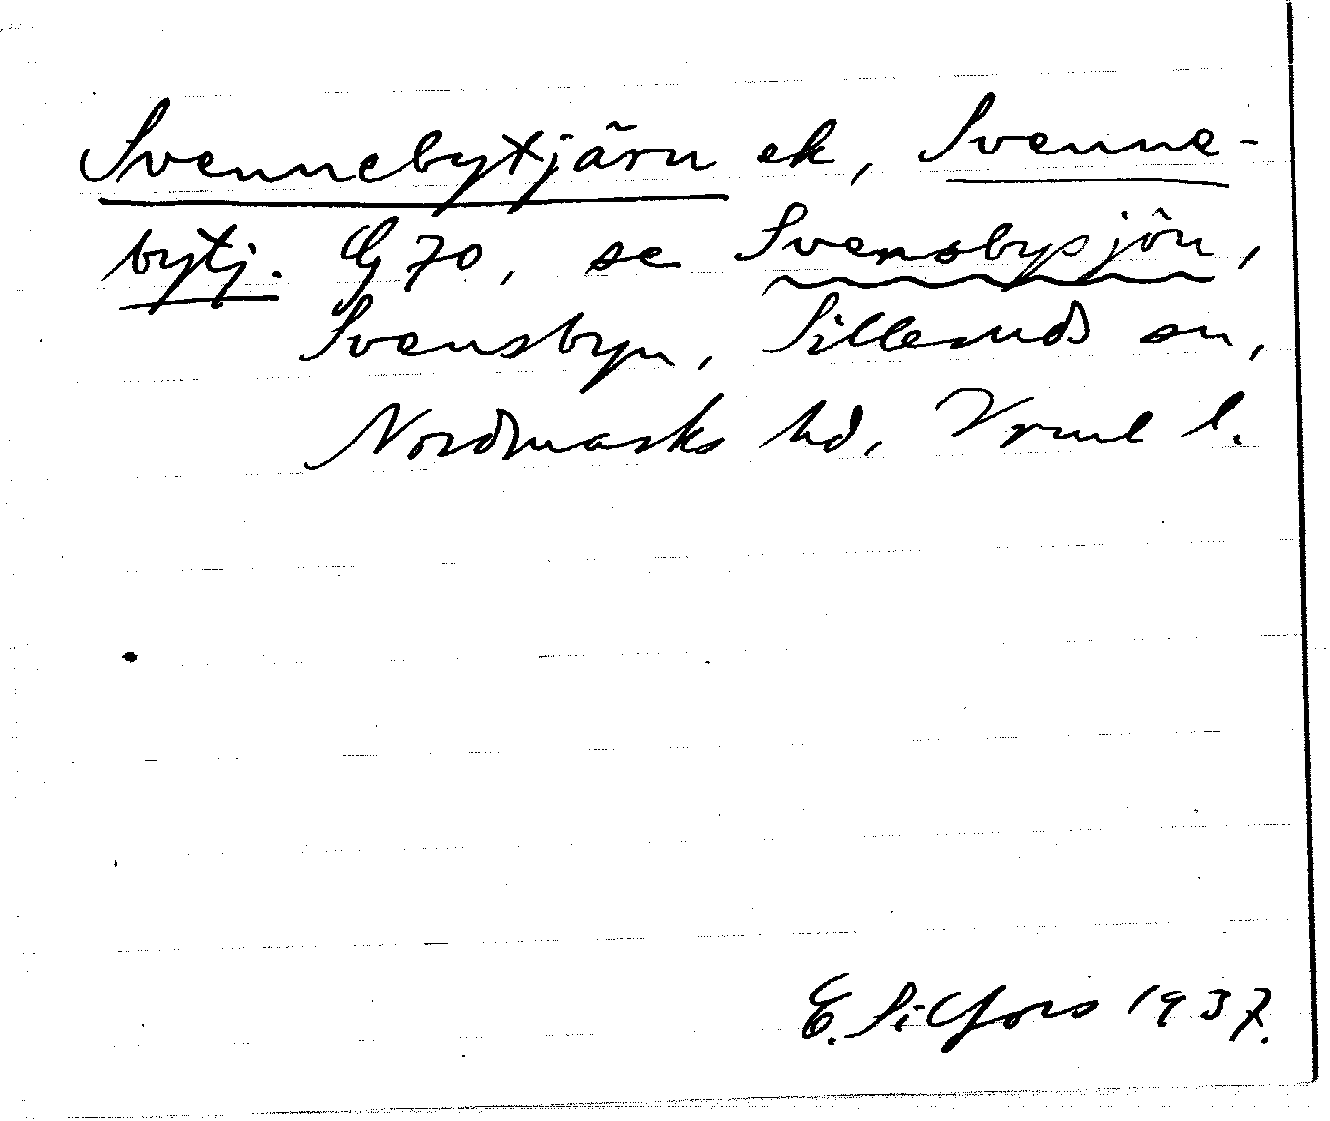 Svennebytjärn ek, Svenne-
bytj. G 70, se Svensbysjön,
Svensbyn, Silleruds sn,
Nordmarks hd, Vrml l.
E. Silfors 1937.